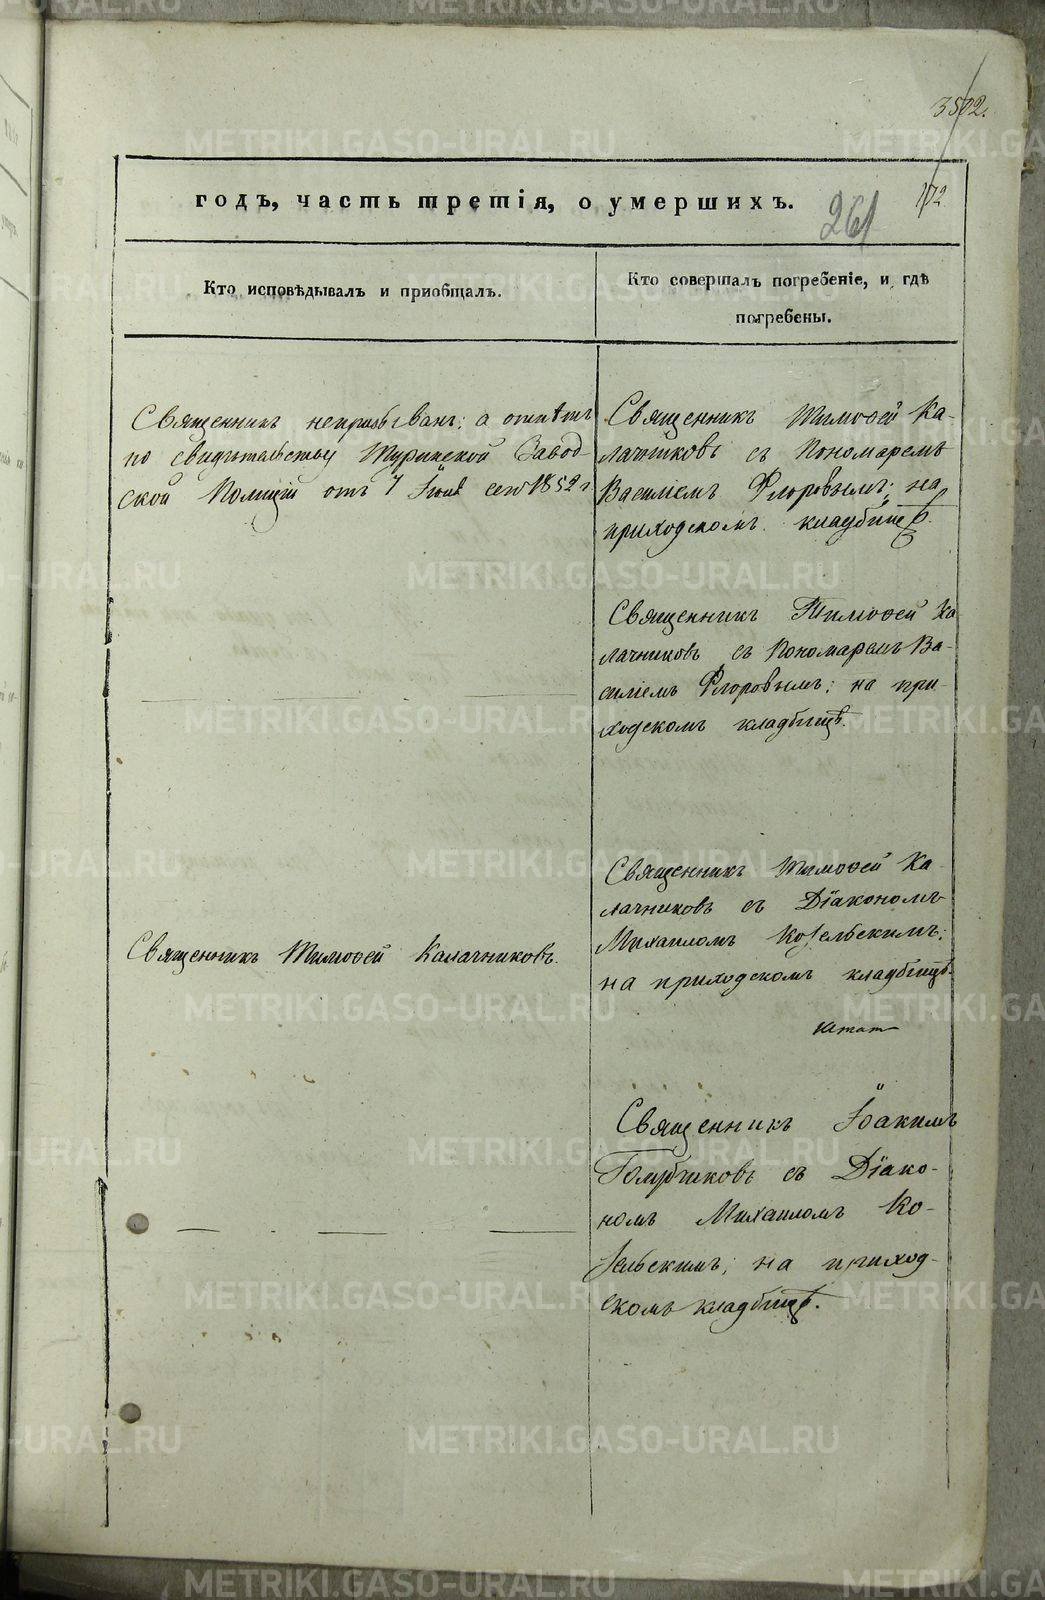 3502.
172
годъ, часть третія, о умершихъ.
261
Кто исповѣдывалъ и приобщалъ.
Кто совершалъ погребеніе, и гдѣ
погребены.
Священникъ непризыванъ; а отпѣтъ
по свидѣтельству Туринской Завод-
ской Полиціи отъ 7 Іюня сего 1852 г
Священникъ Тимофей Ка-
лачниковъ съ Пономаремъ
Василіемъ Флоровымъ; на
приходскомъ кладбищѣ.
Священникъ Тимофей Ка
лачниковъ съ Пономаремъ Ва-
силіемъ Флоровымъ; на при-
ходскомъ кладбищѣ.
Священникъ Тимофей Калачниковъ.
Священникъ Тимофей Ка-
лачниковъ съ Діакономъ
Михаиломъ Козельскимъ;
на приходскомъ кладбищѣ.
Священникъ Іоакимъ
съ Діако-
номъ Михаиломъ Ко-
зельскимъ; на приход-
скомъ кладбищѣ.
METRIKI.GASO-URAL.RU